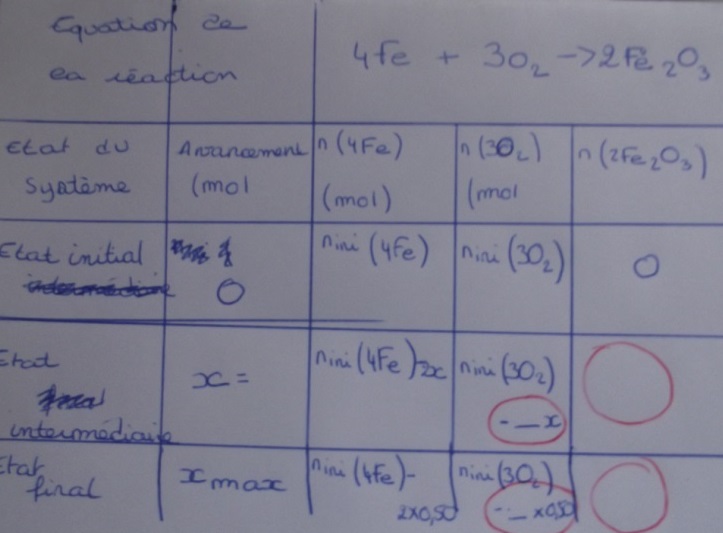 Equation de
la réaction
4Fe + 3O₂ -> 2Fe₂O₃
Etat du
système
Avancement
(mol
n(4Fe)
(mol)
n(3O₂)
(mol
n(2Fe₂O₃)
Etat initial
0
nini(4Fe)
nini(3O₂)
0
Etat
intermédiaire
x =
nini(4Fe)-2x
nini(3O₂)
-__x
Etat
final
xmax
nini(4Fe)-
2x0,50
nini(3O₂)
-__x0,50